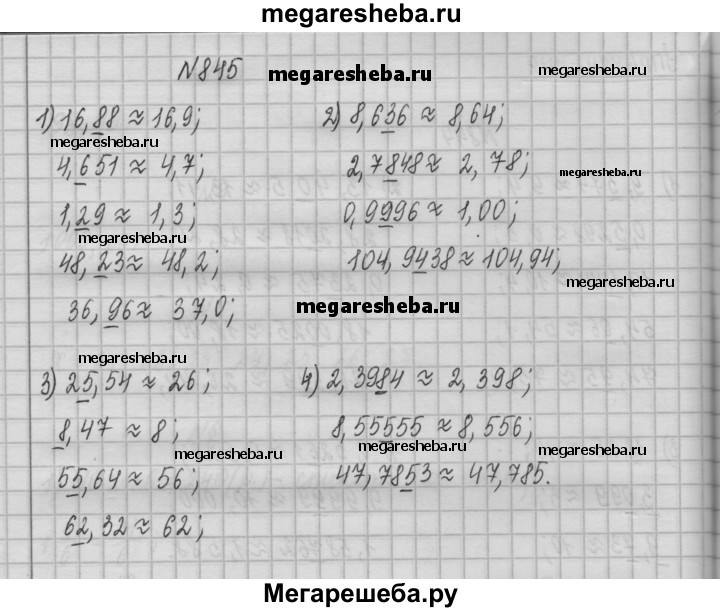 megaresheba.ru
№845
megaresheba.ru
megaresheba.ru
1) 16,88 ≈ 16,9;
2) 8,636 ≈ 8,64;
megaresheba.ru
4,651 ≈ 4,7;
2,7848 ≈ 2,78;
megaresheba.ru
1,29 ≈ 1,3;
0,9996 ≈ 1,00;
megaresheba.ru
48,23 ≈ 48,2;
104,9438 ≈ 104,94;
megaresheba.ru
36,96 ≈ 37,0;
megaresheba.ru
megaresheba.ru
3) 25,54 ≈ 26;
4) 2,3984 ≈ 2,398;
8,47 ≈ 8;
8,55555 ≈ 8,556;
megaresheba.ru
megaresheba.ru
55,64 ≈ 56;
47,7853 ≈ 47,785.
62,32 ≈ 62;
Мегарешеба.ру